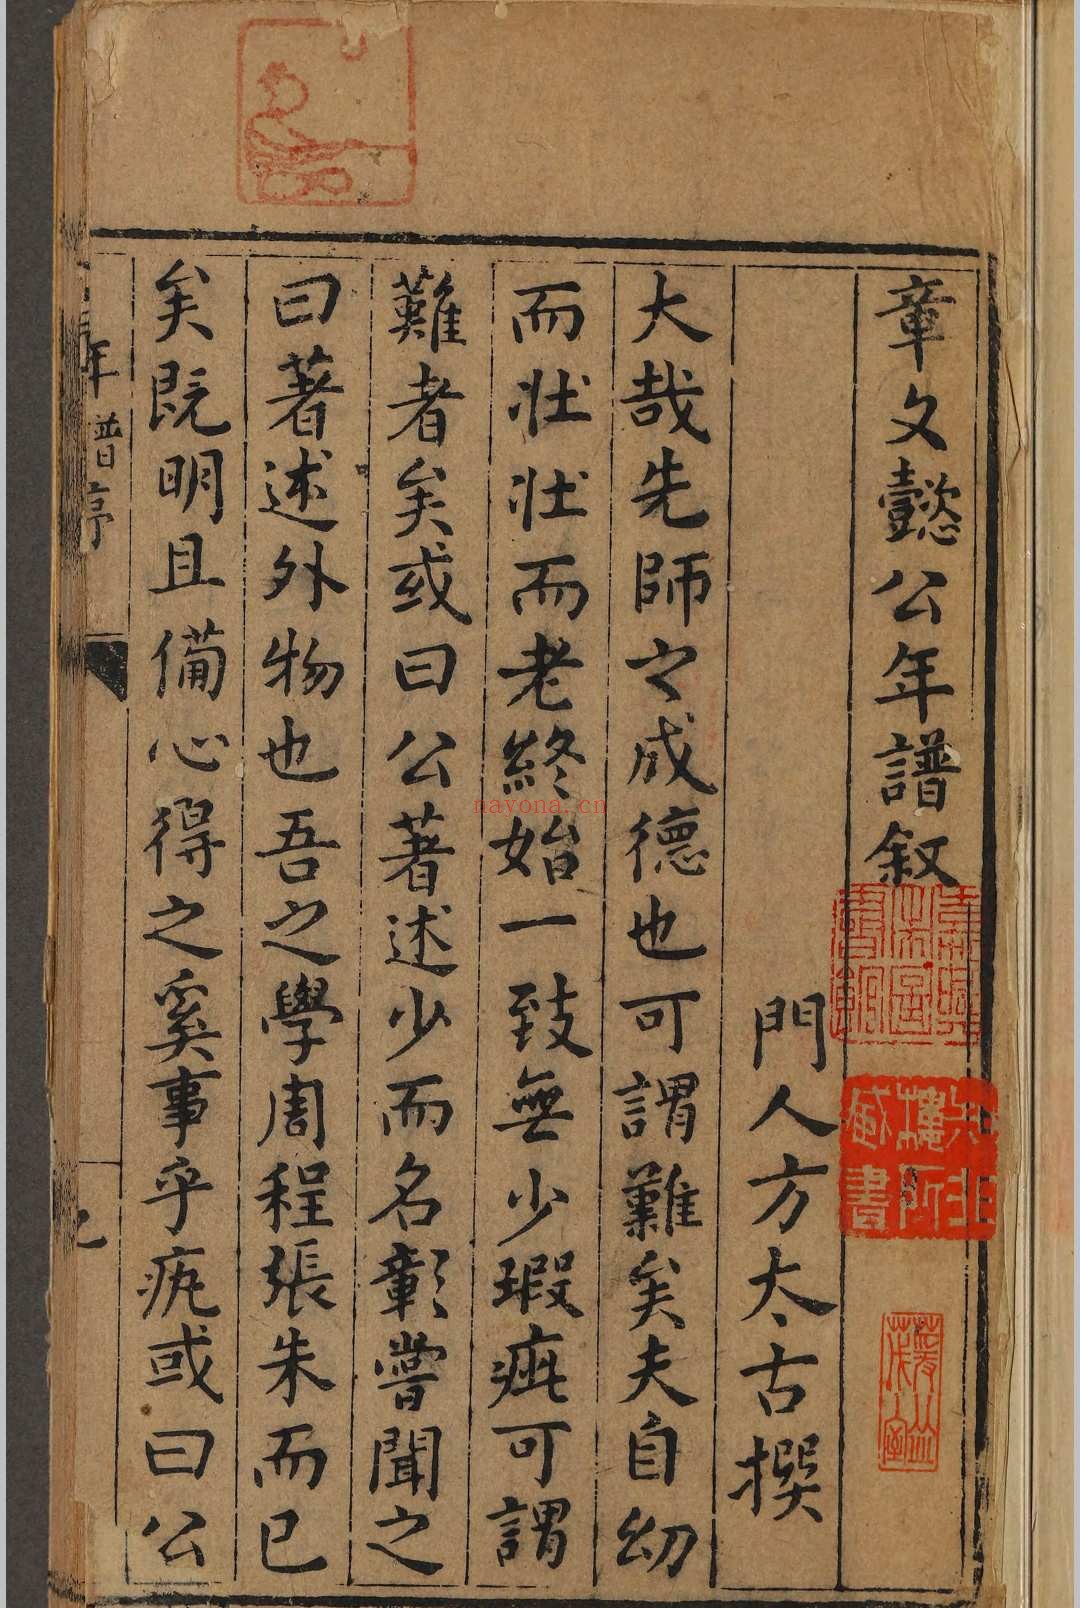 章文懿公年譜敘
門人方太古撰
大哉先師之成德也可謂難矣夫自幼
而壯壯而老終始一致無少瑕疵可謂
難者矣或曰公著述少而名彰嘗聞之
曰著述外物也吾之學周程張朱而已
矣既明且備心得之奚事乎疣或曰公
年譜序
嘉興朱圖書館
知非樓所藏書
navona.cn